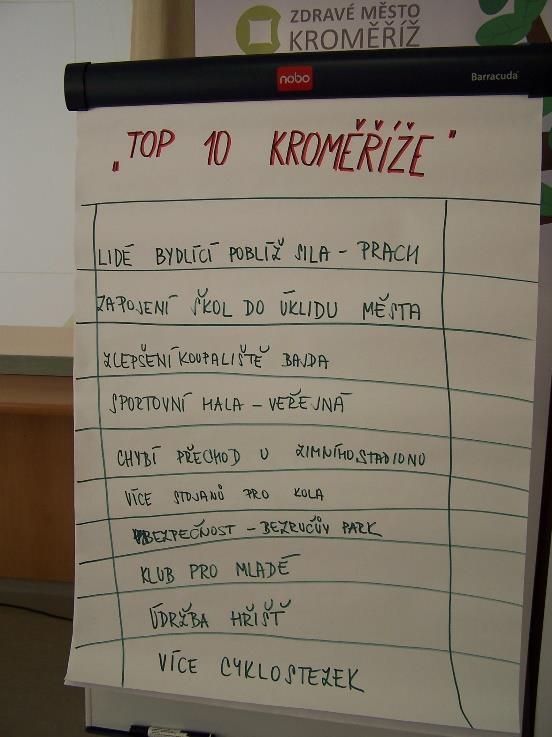 ZDRAVÉ MĚSTO
KROMĚŘÍŽ
nobo
Barracuda
„TOP 10 KROMĚŘÍŽE"
LIDÉ BYDLÍCÍ POBLÍŽ SILA - PRACH
ZAPOJENÍ ŠKOL DO ÚKLIDU MĚSTA
ZLEPŠENÍ KOUPALIŠTĚ BAJDA
SPORTOVNÍ HALA - VEŘEJNÁ
CHYBÍ PŘECHOD U ZIMNÍHO STADIONU
VÍCE STOJANŮ PRO KOLA
BEZPEČNOST - BEZRUČŮV PARK
KLUB PRO MLADÉ
ÚDRŽBA HŘIŠŤ
VÍCE CYKLOSTEZEK